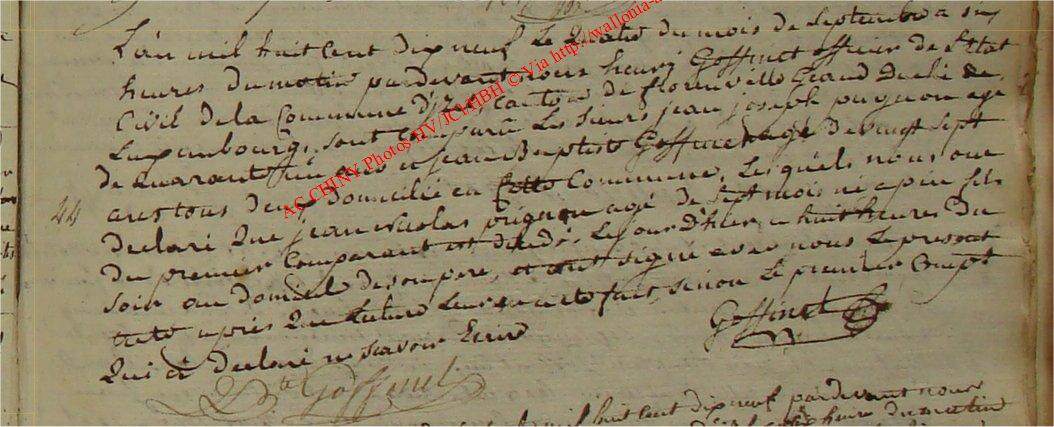 L'an mil huit Cent Dix neuf Le Quatre du mois de Septembre a six
heures du matin pardevant nous henri Goffinet officier de L'Etat
Civil de la Commune d'izel Canton de florenville Grand Duché de
Luxembourg, sont Comparu Les Sieurs jean joseph pugnon age
de quarante un ans et jean Baptiste Goffinet agé de vingt Sept
ans tous deux Domicilié en Cette Commune, Lesquels nous ont
24
Declaré Que jean Nicolas pugnon agé de Sept mois né a pin fils
Du premier Comparant est décédé Le jour D'hier a huit heures Du
Soir au domicil de son pere, et ont signé avec nous Le present
acte après Que Lecture Leur en a eté fait, sinon Le premier Compt
Qui a declaré ne scavoir Ecrire
Goffinet
J Bte Goffinet
mil huit Cent dix neuf pardevant nous
heure du matin
AC CHINY Photos HV/JCL/HBH © Via http://wallonia-